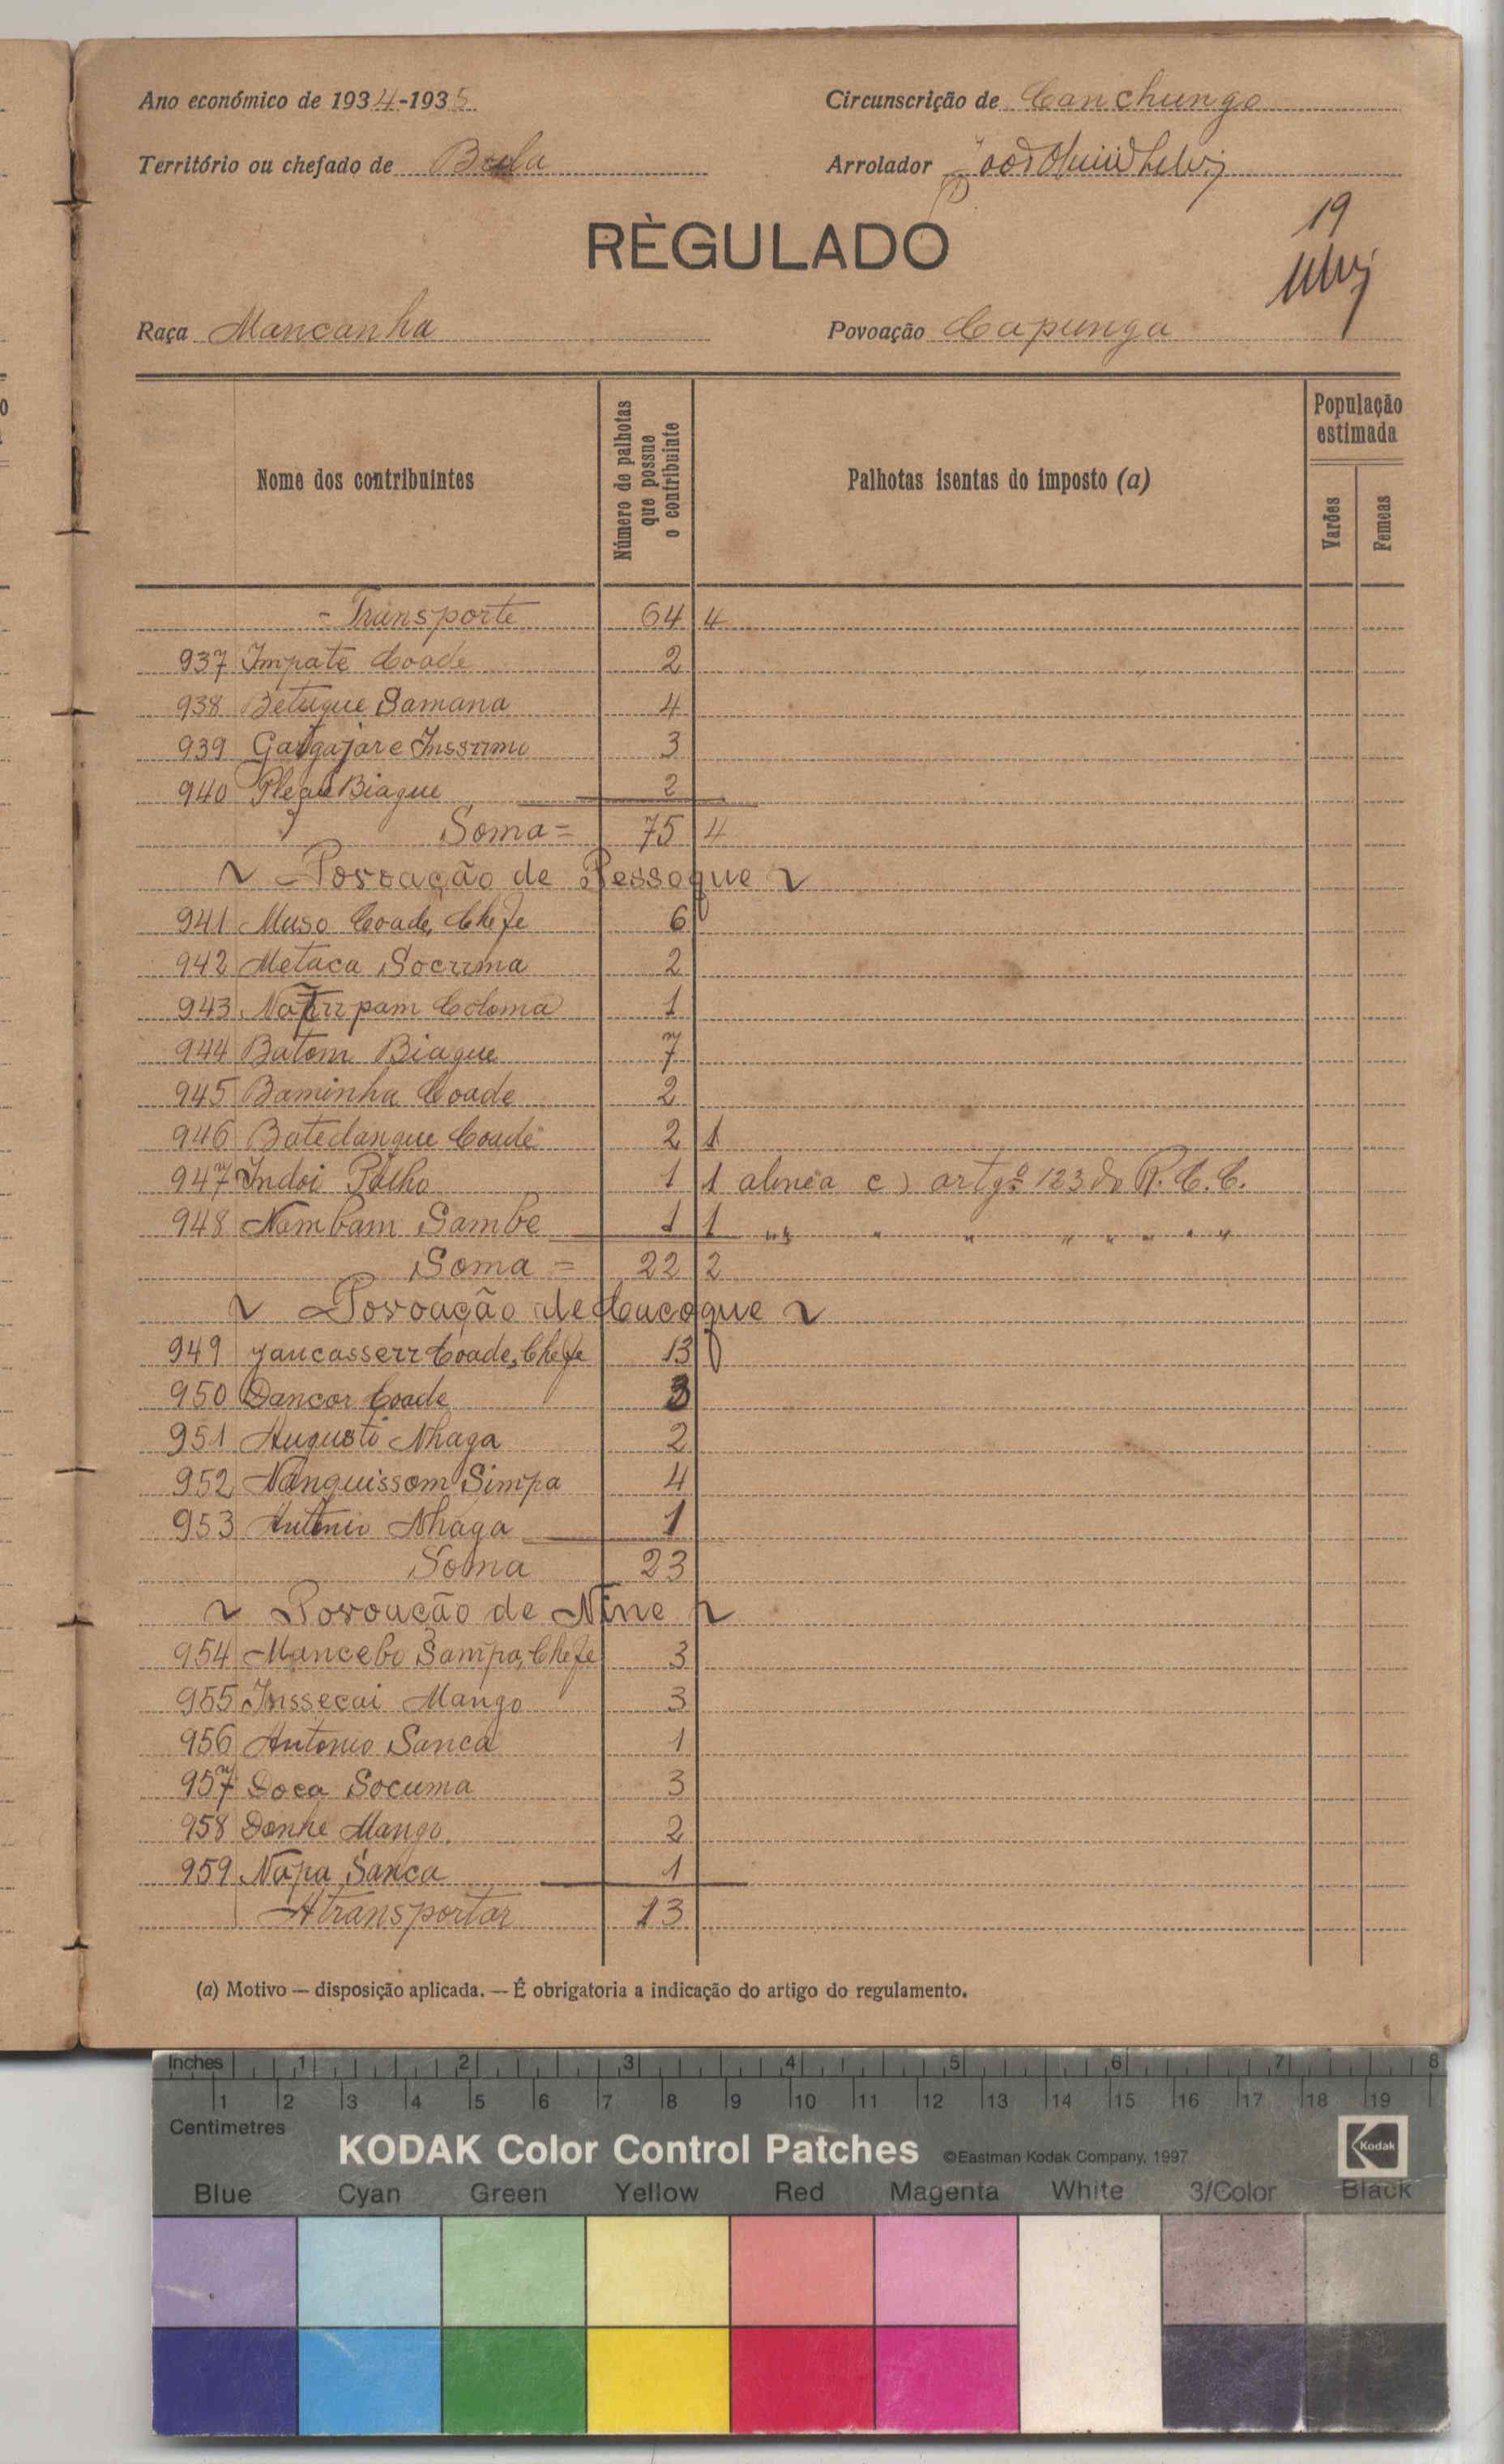 Ano económico de 1934-1935
Circunscrição de Canchungo
Território ou chefado de Bula
Arrolador
RÈGULADO
19
Raça Mancanha
Povoação Capunga
Nome dos contribuintes
Número de palhotas que possue o contribuinte
Palhotas isentas do imposto (a)
População estimada
Varões
Femeas
- Transporte 64 4
937 Impate Coade 2
938 Betuque Samana 4
939 3
940 Biague 2
Soma = 75 4
Povoação de Pessoque
941 Muso Coade, Chefe 6
942 Metaca Socuma 2
943 Coloma 1
944 Batom Biague 7
945 Baminha Coade 2
946 Batedanque Coade 2 1
947 Indoi 1 1 alinea c) artgº 123 do R. C. C.
948 Nambam Sambe 1 1 " " " " " " " "
Soma = 22 2
Povoação de Cucoque
949 Coade, Chefe 13
950 Dancor Coade 3
951 Augusto Nhaga 2
952 Nanquissom Simpa 4
953 Antonio Nhaga 1
Soma 23
Povoação de Nine
954 Mancebo Sampa, Chefe 3
955 Inssecai Mango 3
956 Antonio Sanca 1
957 Doca Socuma 3
958 Donhe Mango. 2
959 Napa Sanca 1
Atransportar 13
(a) Motivo — disposição aplicada. — É obrigatoria a indicação do artigo do regulamento.
Inches 1 2 3 4 5 6 7 8
1 2 3 4 5 6 7 8 9 10 11 12 13 14 15 16 17 18 19
Centimetres
KODAK Color Control Patches ©Eastman Kodak Company, 1997 Kodak
Blue Cyan Green Yellow Red Magenta White 3/Color Black